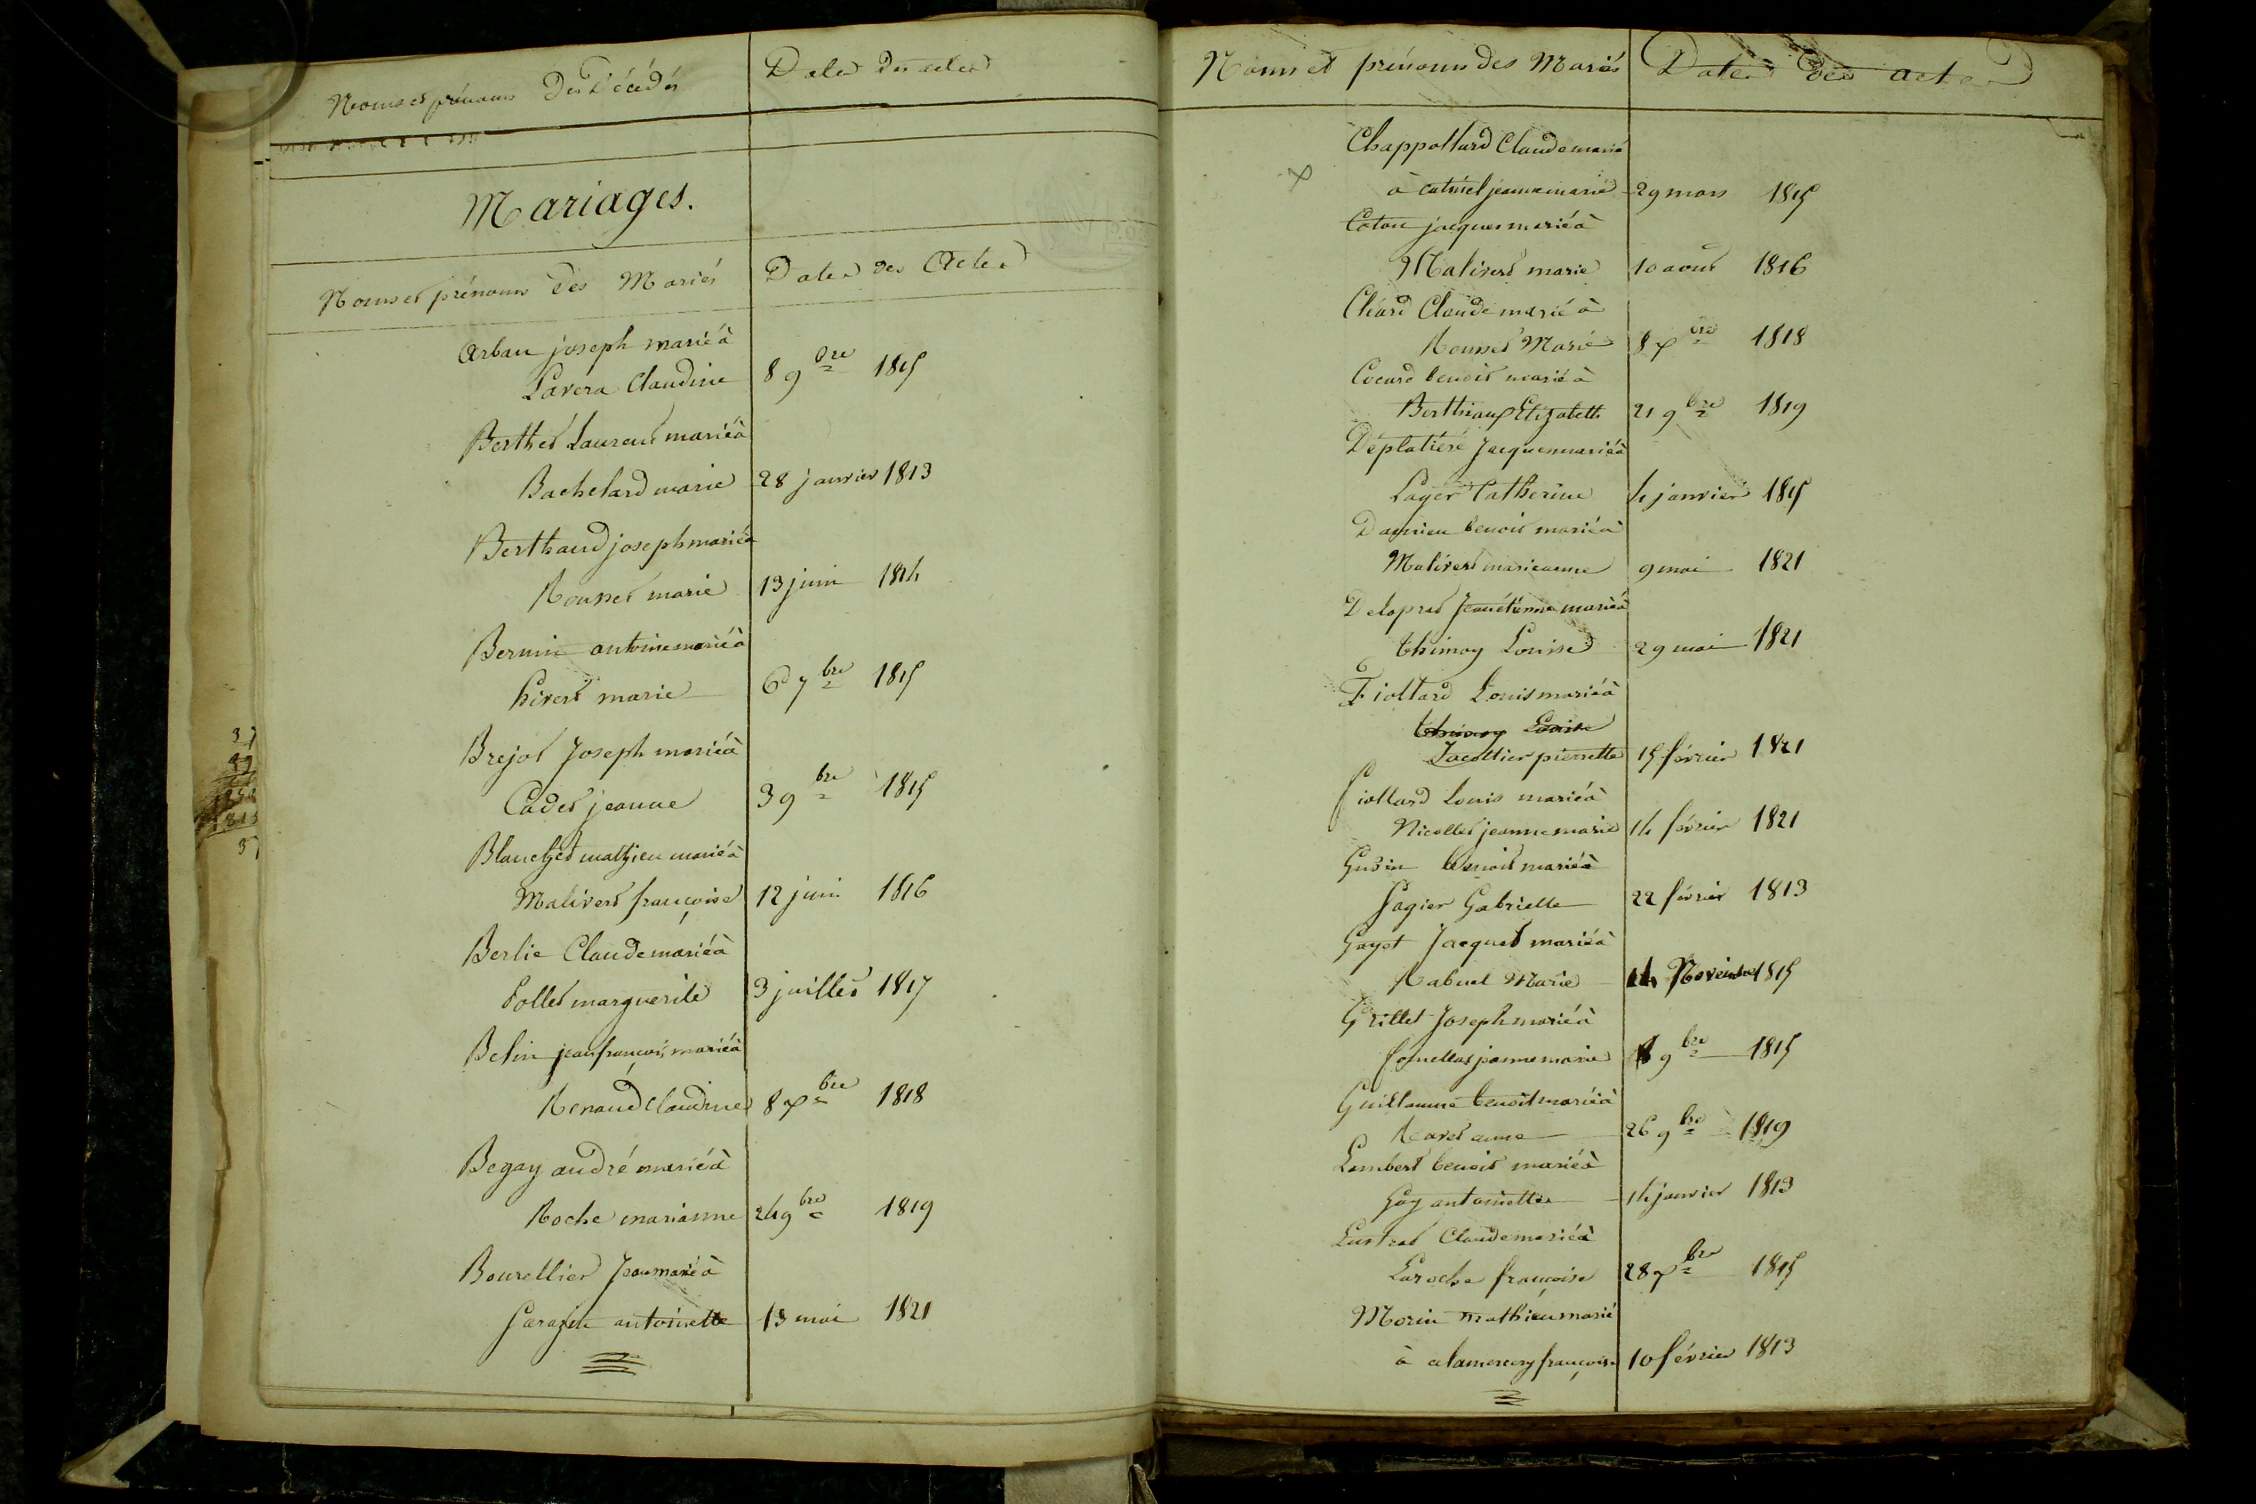 Noms et prénoms des Décédés
Dates des actes
Mariages.
Noms et prénoms des Mariés
Dates des Actes
Arban joseph marié à
Lavera Claudine 8 9bre 1815
Berthet Laurent marié à
Bachelard marie 28 janvier 1813
Berthaud joseph marié à
Rousset marie 13 juin 1814
Bernin antoine marié à
hivert marie 6 7bre 1815
Brejot Joseph marié à
Cadet jeanne 3 9bre 1815
Blanchet mathieu marié à
Malivert françoise 12 juin 1816
Berlie Claude marié à
Pollet marguerite 3 juillet 1817
Belin jean françois marié à
Renaud Claudine 8 xbre 1818
Begay andré marié à
Roche marianne 24 9bre 1819
Bourellier Jean marié à
antoinette 13 mai 1821
37
37
Noms et prénoms des Mariés
Dates des actes
Chappollard Claude marié
x
à catinel jeanne marie 29 mars 1815
Coton jacques marié à
Malivert marie 10 aout 1816
Chard Claude marié à
Rousset Marie 8 xbre 1818
Cocard benoit marié à
Berthiaux Elizabeth 21 9bre 1819
Déplatière Jacques marié à
Layer Catherine 4 janvier 1815
Damien benoit marié à
Malivert marieanne 9 mai 1821
Deloprat Jean étienne marié à
thimoy Louise 29 mai 1821
Fiollard Louis marié à
thimoy Louise
Jacottier pierrette 15 février 1821
fiollard Louis marié à
Nicollet jeanne marie 14 février 1821
Gudin benoit marié à
Pagier Gabrielle 22 février 1813
Gayet Jacques marié à
Rabuel Marie 14 Novembre 1815
Grillet Joseph marié à
jeanne marie 8 9bre 1815
Guillaume benoit marié à
Ravet anne 26 9bre 1819
Lambert benoit marié à
Goy antoinette 14 janvier 1813
Lustrat Claude marié à
Laroche françoise 28 xbre 1815
Morin mathieu marié
à alamercery françoise 10 février 1813